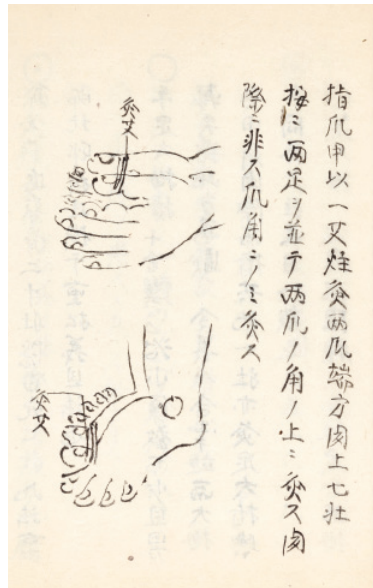 指爪甲以一艾炷灸両爪端方肉上七壮
按ニ両足ヲ並テ両爪ノ角ノ上ニ灸ス肉
際ニ非ス爪角ニノミ灸ス
灸艾
灸艾